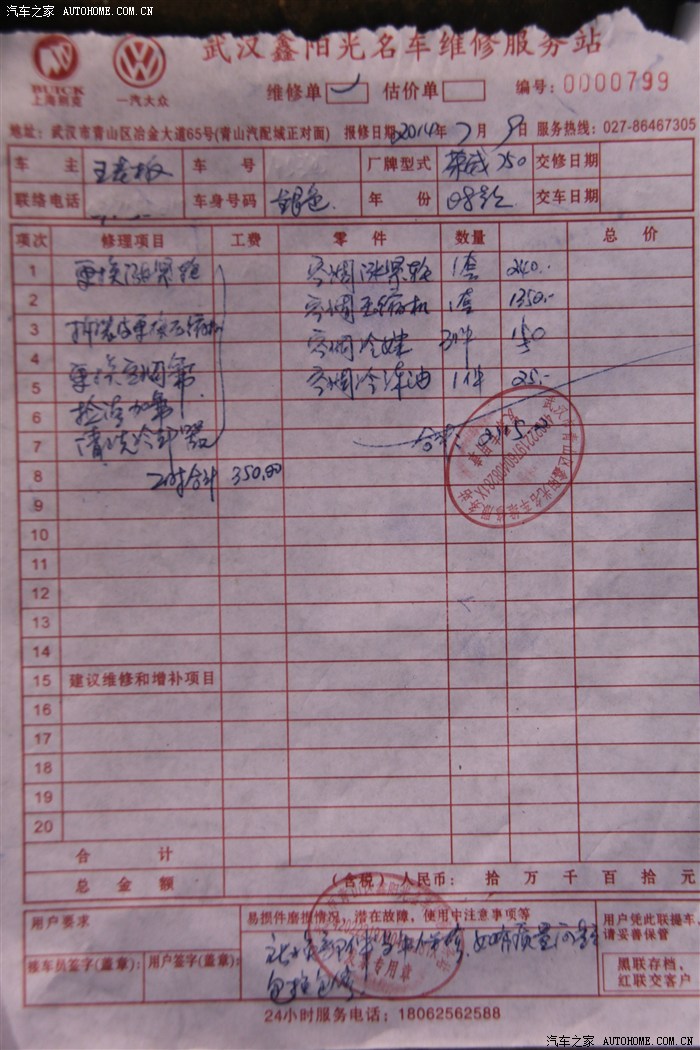 汽车之家 AUTOHOME.COM.CN
武汉鑫阳光名车维修服务站
BUICK
上海别克
一汽大众
维修单 估价单 编号: 0000799
地址: 武汉市青山区冶金大道65号(青山汽配城正对面) 报修日期 2014年 7月 9日 服务热线: 027-86467305
车主 王老板 车号 厂牌型式 荣威750 交修日期
联络电话 车身号码 银色 年份 08款 交车日期
项次 修理项目 工费 零件 数量 总价
1 更换涨紧轮 空调涨紧轮 1套 240.-
2 空调压缩机 1套 1350.-
3 拆装及更换压缩机 空调冷媒 3件 150
4 更换空调氟 空调冷冻油 1件 25.-
5
6 检漏加氟
7 清洗冷却器 合计:
8 工时合计 350.00
9
10
11
12
13
14
15 建议维修和增补项目
16
17
18
19
20
合计
总金额 (含税) 人民币: 拾 万 千 百 拾 元
用户要求 易损件磨损情况，潜在故障，使用中注意事项等 用户凭此联提车，请妥善保管
如有质量问题
包换包修
接车员签字(盖章): 用户签字(盖章): 黑联存档、
红联交客户
24小时服务电话: 18062562588
汽车之家 AUTOHOME.COM.CN